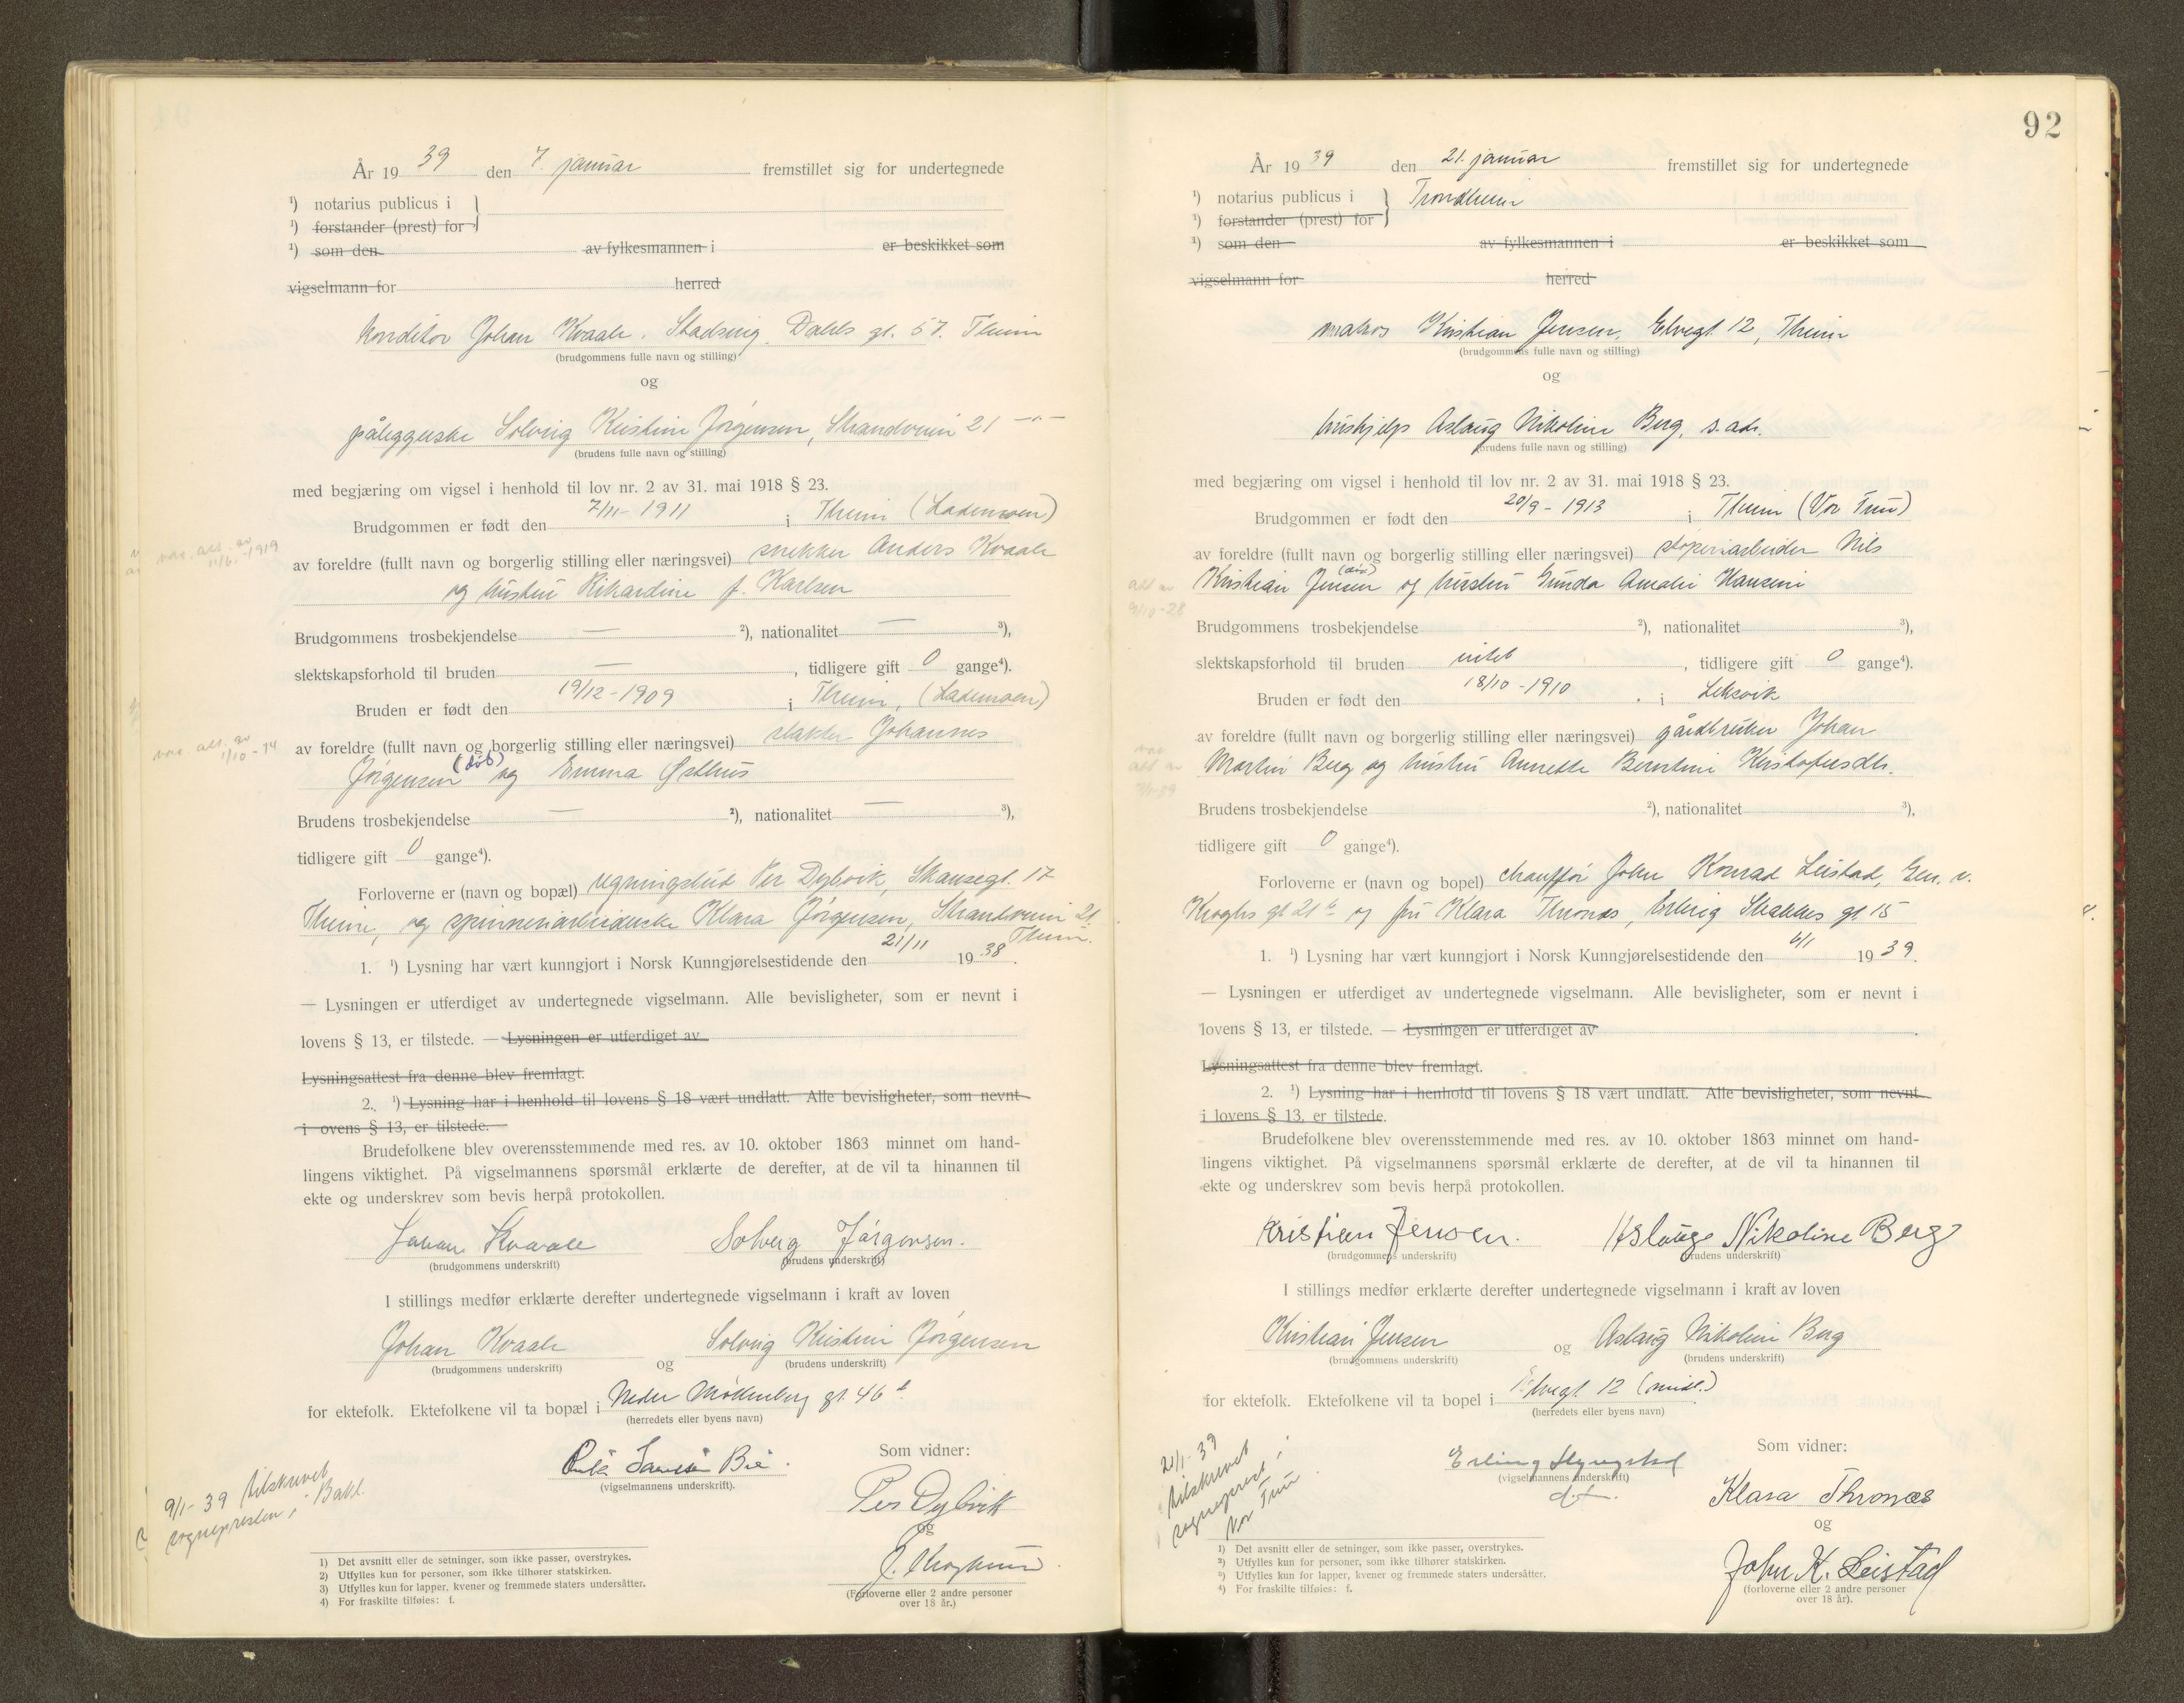 År 19 39 den 7. januar fremstillet sig for undertegnede
¹) notarius publicus i
¹) forstander (prest) for
¹) som den av fylkesmannen i er beskikket som
vigselmann for herred
konditor Johan Kvaale. Stadsing. Dahls gt. 57. Theim
(brudgommens fulle navn og stilling)
og
påleggerske Solveig Kristine Jørgensen, Strandveien 21 —"—
(brudens fulle navn og stilling)
med begjæring om vigsel i henhold til lov nr. 2 av 31. mai 1918 § 23.
Brudgommen er født den 7/11- 1911 i Theim (Lademoen)
av foreldre (fullt navn og borgerlig stilling eller næringsvei) snekker Anders Kvaale
og hustru Rikardine f. Karlsen
vac. att. av
11/6.-1919
Brudgommens trosbekjendelse — ²), nationalitet — ³),
slektskapsforhold til bruden —, tidligere gift 0 gange⁴).
Bruden er født den 19/12-1909 i Theim, (Lademoen)
av foreldre (fullt navn og borgerlig stilling eller næringsvei) slakter Johannes
Jørgensen (død) og Emma Østhus
vac. att. av
1/10-14
Brudens trosbekjendelse — ²), nationalitet — ³),
tidligere gift 0 gange⁴).
Forloverne er (navn og bopæl) regningsbud Per Dybvik, Skansegt. 17
Theim, og spinneriarbeiderske Klara Jørgensen, Strandveien 21
Theim.
1. ¹) Lysning har vært kunngjort i Norsk Kunngjørelsestidende den 21/11 19 38.
— Lysningen er utferdiget av undertegnede vigselmann. Alle bevisligheter, som er nevnt i
lovens § 13, er tilstede. — Lysningen er utferdiget av
Lysningsattest fra denne blev fremlagt.
2. ¹) Lysning har i henhold til lovens § 18 vært undlatt. Alle bevisligheter, som nevnt
i ovens § 13, er tilstede.
Brudefolkene blev overensstemmende med res. av 10. oktober 1863 minnet om hand-
lingens viktighet. På vigselmannens spørsmål erklærte de derefter, at de vil ta hinannen til
ekte og underskrev som bevis herpå protokollen.
Johan Kvaale Solveig Jørgensen.
(brudgommens underskrift) (brudens underskrift)
I stillings medfør erklærte derefter undertegnede vigselmann i kraft av loven
Johan Kvaale og Solveig Kristine Jørgensen
(brudgommens underskrift) (brudens underskrift)
for ektefolk. Ektefolkene vil ta bopæl i Nedre Møllenberg gt. 46
(herredets eller byens navn)
Som vidner:
(vigselmannens underskrift).
Per Dybvik
og
(Forloverne eller 2 andre personer
over 18 år.)
9/1-39 tilskrevet
sognepresten i Bakl.
1) Det avsnitt eller de setninger, som ikke passer, overstrykes.
2) Utfylles kun for personer, som ikke tilhører statskirken.
3) Utfylles kun for lapper, kvener og fremmede staters undersåtter.
4) For fraskilte tilføies: f.
92
År 19 39 den 21. januar fremstillet sig for undertegnede
¹) notarius publicus i Trondheim
¹) forstander (prest) for
¹) som den av fylkesmannen i er beskikket som
vigselmann for herred
matros Kristian Jensen, Elvegt. 12, Theim
(brudgommens fulle navn og stilling)
og
hushjelp Aslaug Nikoline Berg, s. adr.
(brudens fulle navn og stilling)
med begjæring om vigsel i henhold til lov nr. 2 av 31. mai 1918 § 23.
Brudgommen er født den 20/9 - 1913 i Theim (Vor Frue)
av foreldre (fullt navn og borgerlig stilling eller næringsvei) støperiarbeider Nils
Kristian Jensen (død) og hustru Gunda Amalie Hansine
att. av
9/10-28
Brudgommens trosbekjendelse ²), nationalitet ³),
slektskapsforhold til bruden intet, tidligere gift 0 gange⁴).
Bruden er født den 18/10 -1910 i Leksvik
av foreldre (fullt navn og borgerlig stilling eller næringsvei) gårdbruker Johan
Martin Berg og hustru Annette Berntine Kristofersdtr.
vac.
att. av
Brudens trosbekjendelse ²), nationalitet ³),
tidligere gift 0 gange⁴).
Forloverne er (navn og bopel) chauffør John Konrad Leistad, Gen. v.
Kroghs gt 21 b og fru Klara Thronæs, Erling Skakkes gt 15
1. ¹) Lysning har vært kunngjort i Norsk Kunngjørelsestidende den 6/1 19 39.
— Lysningen er utferdiget av undertegnede vigselmann. Alle bevisligheter, som er nevnt i
lovens § 13, er tilstede. — Lysningen er utferdiget av
Lysningsattest fra denne blev fremlagt.
2. ¹) Lysning har i henhold til lovens § 18 vært undlatt. Alle bevisligheter, som nevnt
i lovens § 13, er tilstede.
Brudefolkene blev overensstemmende med res. av 10. oktober 1863 minnet om hand-
lingens viktighet. På vigselmannens spørsmål erklærte de derefter, at de vil ta hinannen til
ekte og underskrev som bevis herpå protokollen.
Kristian Jensen. Aslaug Nikoline Berg
(brudgommens underskrift) (brudens underskrift)
I stillings medfør erklærte derefter undertegnede vigselmann i kraft av loven
Kristian Jensen og Aslaug Nikoline Berg
(brudgommens underskrift) (brudens underskrift)
for ektefolk. Ektefolkene vil ta bopel i Elvegt 12 (midl.)
(herredets eller byens navn)
Som vidner:
Erling
(vigselmannens underskrift)
d.f.
Klara Thronæs
og
John K. Leistad
(forloverne eller 2 andre personer
over 18 år).
21/1-39
tilskrevet
sogneprest i
Vor Frue
¹) Det avsnitt eller de setninger, som ikke passer, overstrykes.
²) Utfylles kun for personer, som ikke tilhører statskirken.
³) Utfylles kun for lapper, kvener og fremmede staters undersåtter.
⁴) For fraskilte tilføies: f.